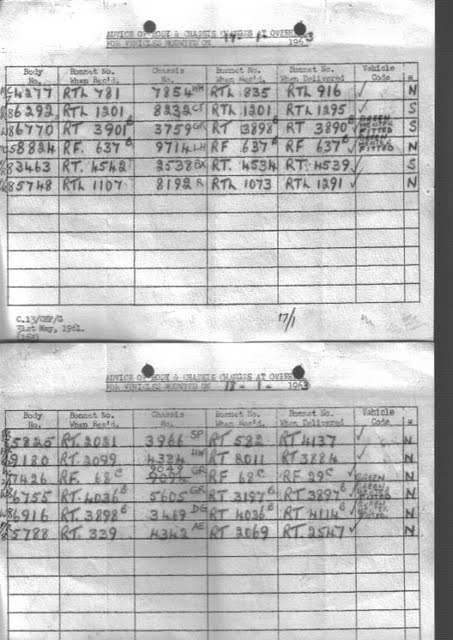 ADVICE OF BODY & CHASSIS CHANGES AT OVERH
FOR VEHICLES MODIFIED ON 17 - 1 - 1963
Body No. Bonnet No. When Rec'd. Chassis No. Bonnet No. When Rec'd. Bonnet No. When Delivered Vehicle Code *
4277 RTL 781 7854 RTL 835 RTL 916 ✓ N
86292 RTL 1201 8232 RTL 1201 RTL 1295 ✓ S
86770 RT 3901 3759 GR RT 3898 RT 3890 GREEN FITTED S
58824 RF. 637 9714 LH RF 637 RF 637 ✓ FITTED N
83463 RT. 4542 2538 BX RT. 4534 RT. 4539 ✓ S
85748 RTL 1107 8192 R RTL 1073 RTL 1291 ✓ N
C.13/GEF/G
31st May, 1961.
17/1
ADVICE OF BODY & CHASSIS CHANGES AT OVERH
FOR VEHICLES MODIFIED ON 1 - 1963
Body No. Bonnet No. When Rec'd. Chassis No. Bonnet No. When Rec'd. Bonnet No. When Delivered Vehicle Code *
5825 RT 2021 3966 SP RT 582 RT 4137 ✓ N
9180 RT. 2099 4324 HW RT 2011 RT 3884 ✓ N
7426 RF. 68 C GR RF 68 C RF 29 C ✓ N
6755 RT. 4036 5605 GR RT 3197 RT 3897 GREEN FITTED N
6916 RT. 3898 3419 DG RT 4036 RT 4114 ✓ FITTED N
5788 RT. 339 4342 AE RT 2069 RT. 2547 ✓ N